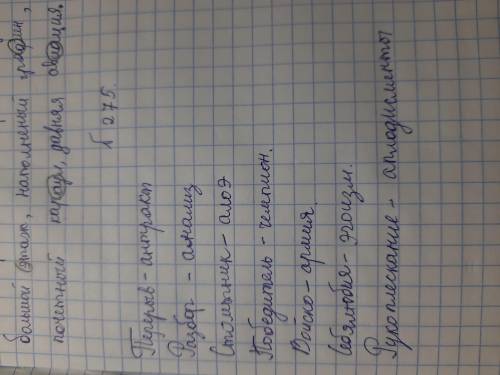 большой этаж, наполненый графин,
почётный караул, давняя овация.
№ 275.
Перерыв - антракт
Разбор - анализ
Столетник - алоэ
Победитель - чемпион.
Войско - армия.
Себялюбия - эгоизм.
Рукоплескание - аплодисменты